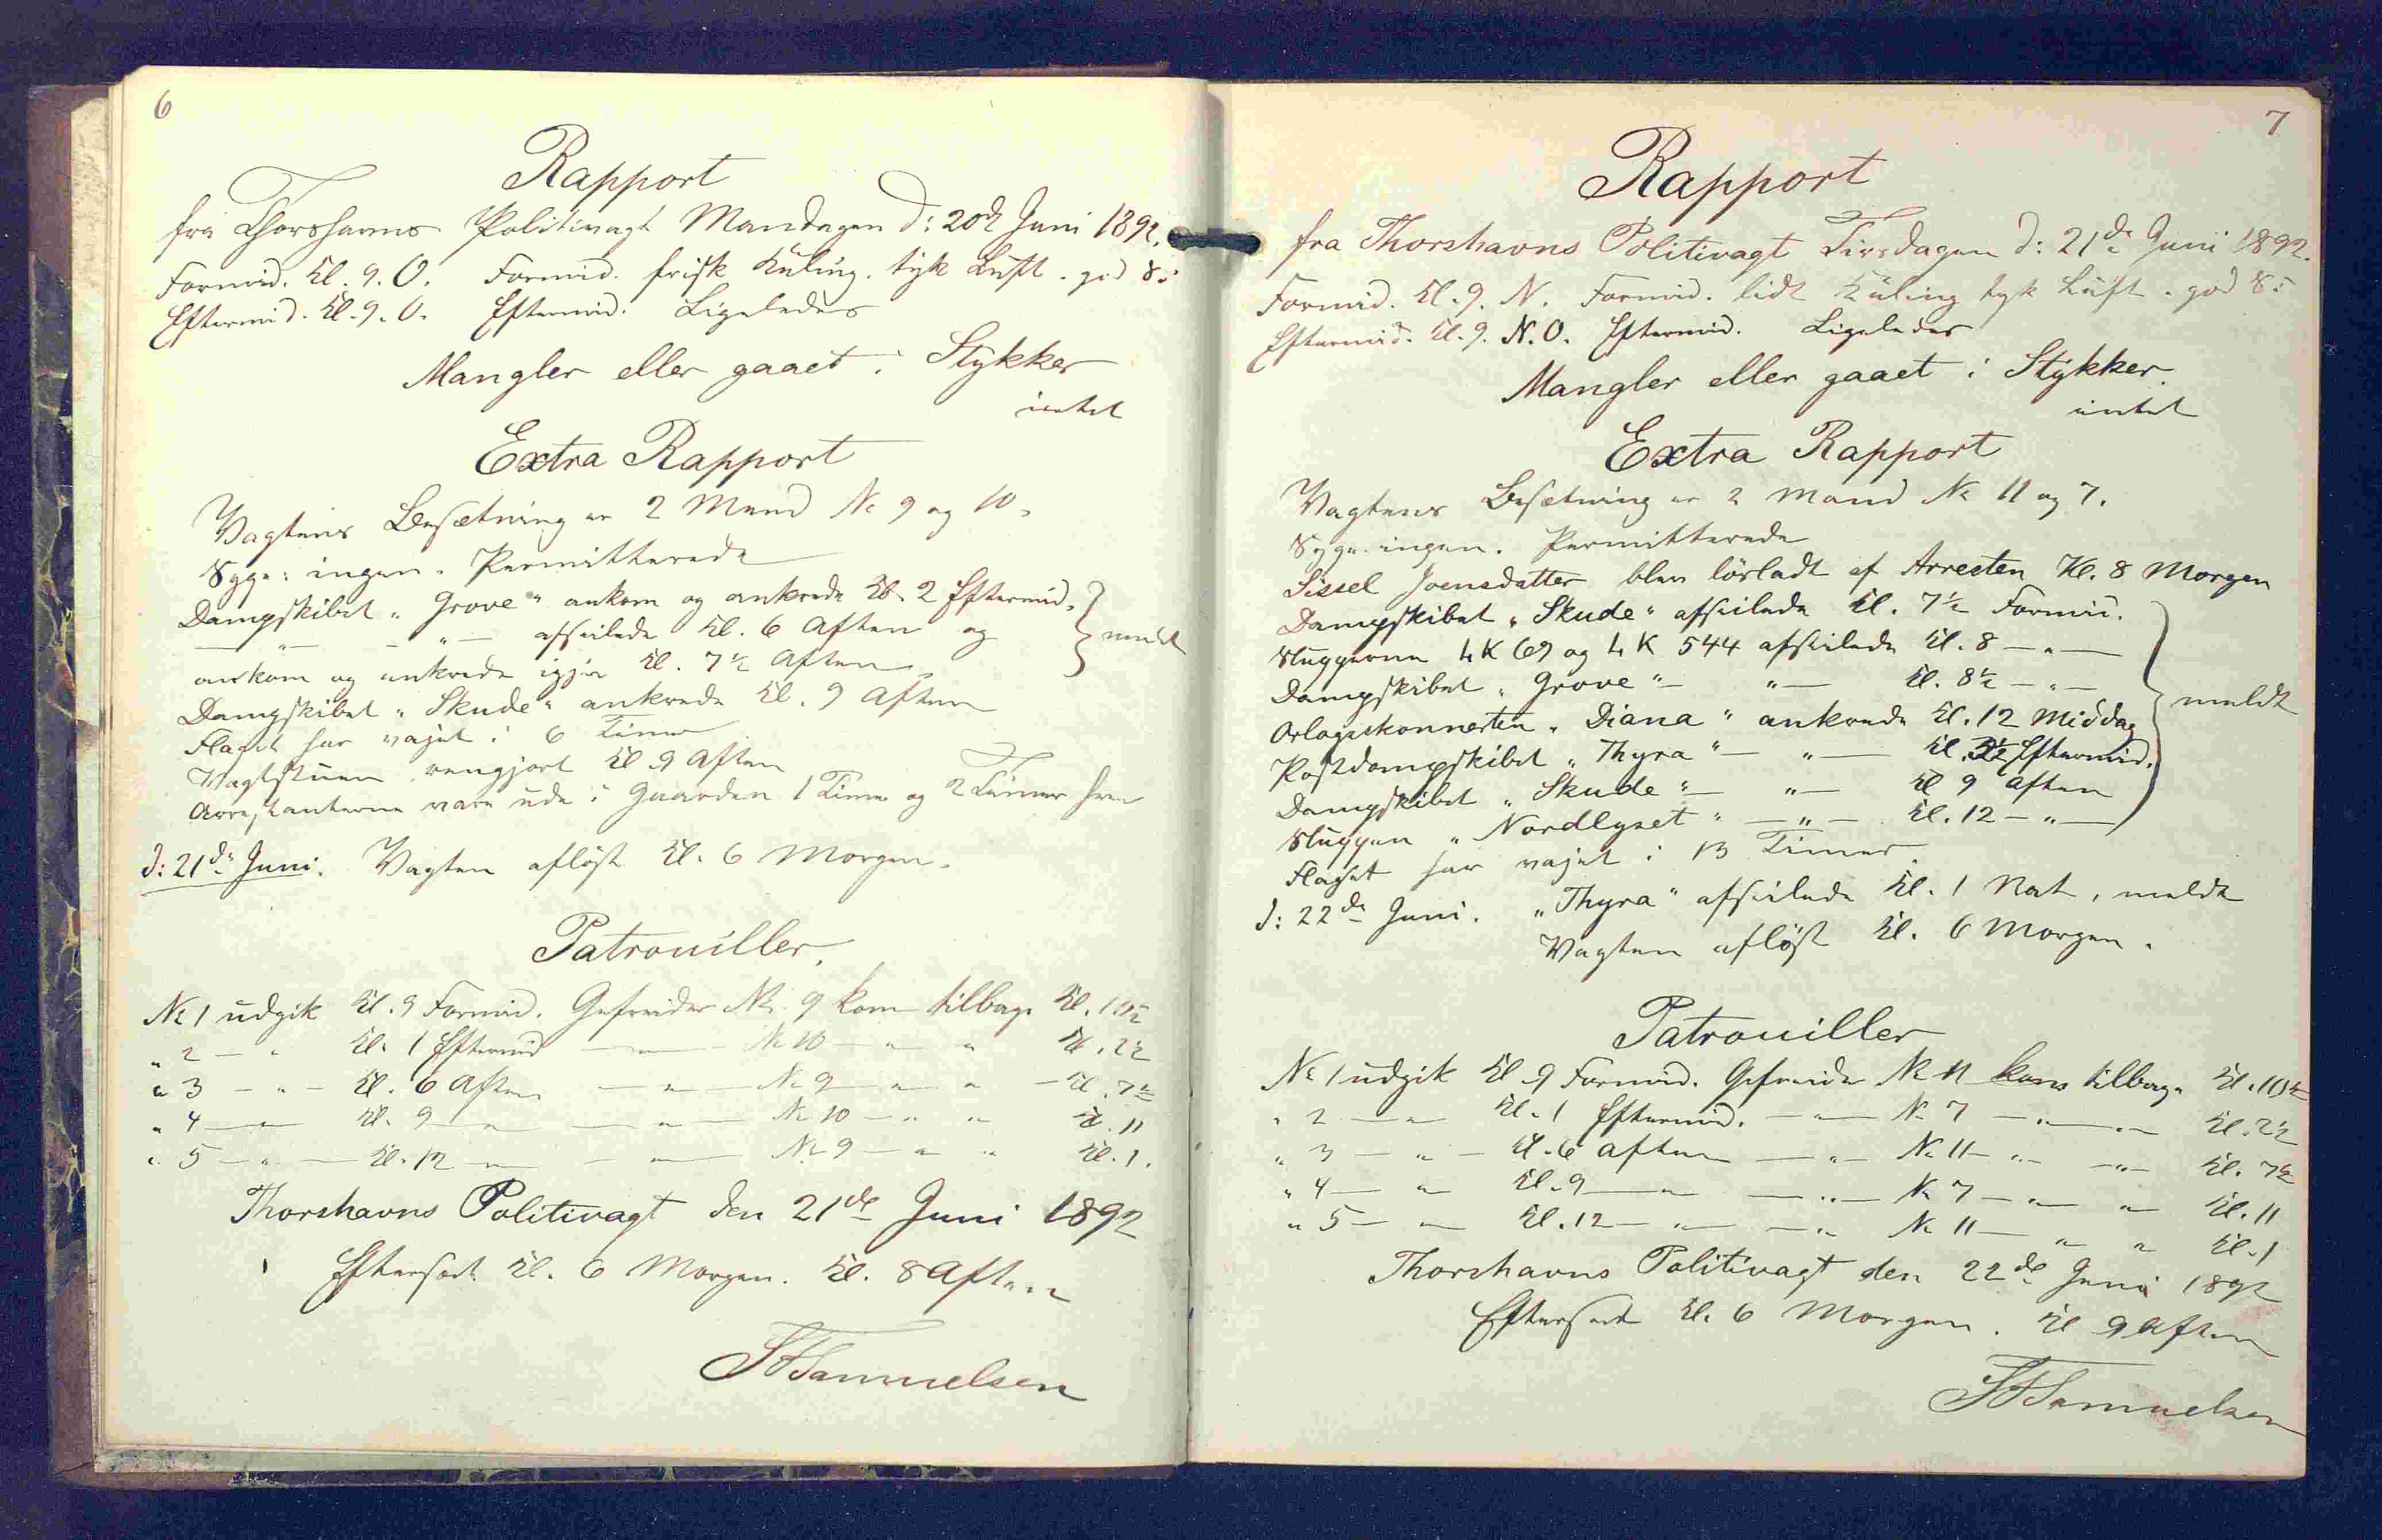 6
Rapport
fra Thorshavns Politivagt Mandagen d: 20de Juni 1892.
Formid. Kl. 9. O. Formid. frisk Kuling. tyk Luft. god
Eftermid. Kl. 9. O. Eftermid. Ligeledes
Mangler eller gaaet i Stykker
intet
Extra Rapport
Vagtens Besætning er 2 Mand No 9 og 10.
Syge: ingen. Permitterede
Dampskibet "Grove" ankom og ankrede Kl. 2 Eftermid.
— " — " — afseilede Kl. 6 Aften og
ankom og ankrede igjen Kl. 7½ Aften
meldt
Dampskibet "Skude" ankrede Kl. 9 Aften
Flaget har vajet i 6 Timer
Vagtstuen rengjort Kl 9 Aften
Arrestanterne vare ude i Gaarden 1 Time og 2 Timer
d: 21de Juni. Vagten afløst Kl. 6 Morgen.
Patrouiller.
No 1 udgik Kl. 9 Formid. Gefreider No 9 kom tilbage Kl. 10½
" 2 — " Kl. 1 Eftermid — " — No 10 — " " Kl. 2½
" 3 — " — Kl. 6 Aften — " — No 9 — " " — Kl. 7½
" 4 — " Kl. 9 — " — " — No 10 — " " Kl. 11
" 5 — " — Kl. 12 — " — " — No 9 — " " Kl. 1.
Thorshavns Politivagt den 21de Juni 1892
Efterseet Kl. 6 Morgen. Kl. 8 Aften
Samuelsen
7
Rapport
fra Thorshavns Politivagt Tirsdagen d: 21de Juni 1892.
Formid. Kl. 9. N. Formid. lidt Kuling tyk Luft. god
Eftermid. Kl. 9. N.O. Eftermid. Ligeledes
Mangler eller gaaet i Stykker.
intet
Extra Rapport
Vagtens Besætning er 2 Mand No 11 og 7.
Syge. ingen. Permitterede
Sissel Joensdatter blev lösladt af Arresten Kl. 8 Morgen
Dampskibet "Skude" afseilede Kl. 7½ Formid.
Sluggerne LK 69 og LK 544 afseilede Kl. 8 — " —
Dampskibet "Grove" — " — Kl. 8½ — " —
Orlogsskonnerten "Diana" ankrede Kl. 12 Middag
meldt
Postdampskibet "Thyra" — " — Kl. Eftermid.
Dampskibet "Skude" — " — Kl 9 Aften
Sluggen "Nordlyset" — " — Kl. 12 — " —
Flaget har vajet i 13 Timer.
d: 22de Juni. "Thyra" afseilede Kl. 1 Nat, meldt
Vagten afløst Kl. 6 Morgen.
Patrouiller
No 1 udgik Kl 9 Formid. Gefreider No 11 kom tilbage Kl. 10½
" 2 — " Kl. 1 Eftermid. — " — No 7 — " — " Kl. 2½
" 3 — " — Kl. 6 Aften — " — No 11 — " — " — Kl. 7½
" 4 — " Kl. 9 — " — " — No 7 — " — " Kl. 11
" 5 — " Kl. 12 — " — " No 11 — " " Kl. 1
Thorshavns Politivagt den 22de Juni 1892
Efterseet Kl. 6 Morgen. Kl 9 Aften
Samuelsen